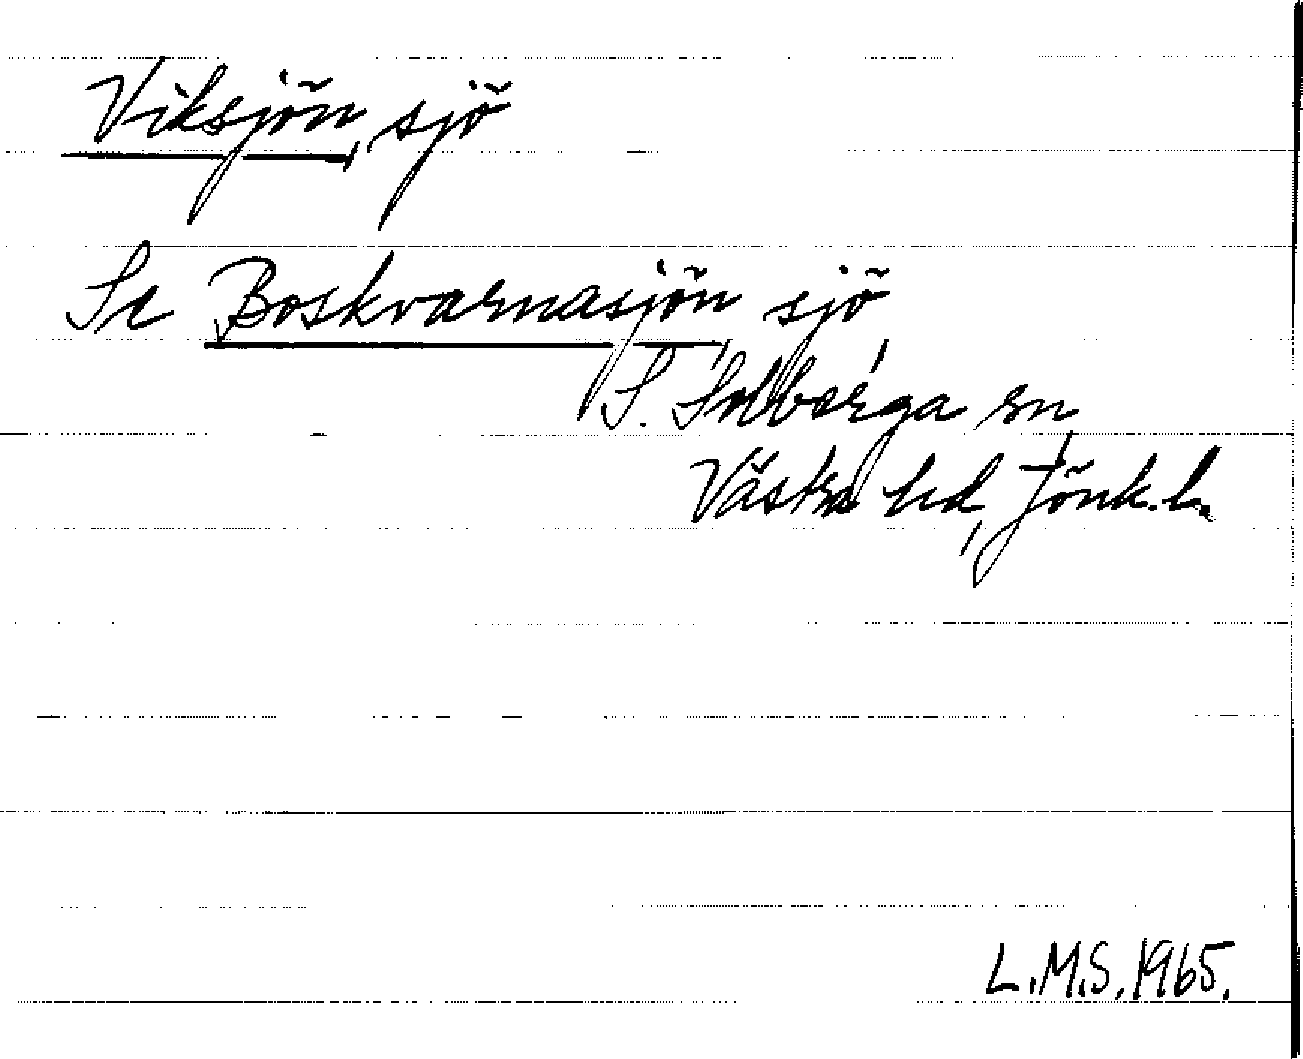 Viksjön, sjö
Se Boskvarnasjön, sjö,
S. Solberga sn,
Västra hd, Jönk.l.
L.M.S. 1965.